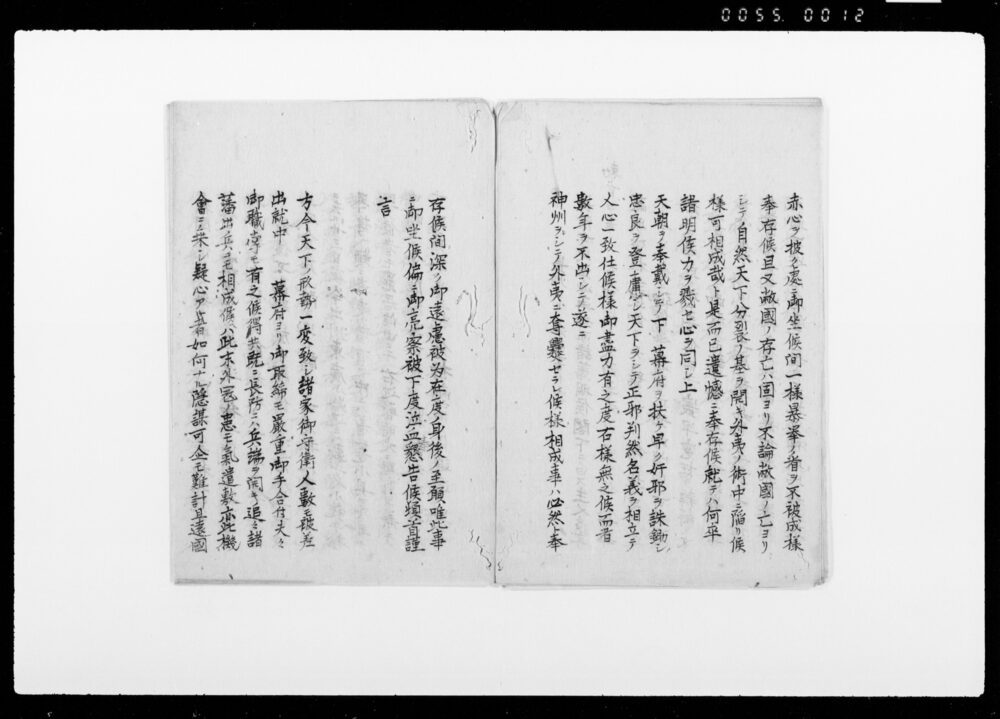 0055. 0012
赤心ヲ披ク處ニ御坐候間一様暴挙ノ者ヲ不被成様
奉存候且又敝國ノ存亡ハ固ヨリ不論敝國ノ亡ヨリ
シテ自然天下分裂ノ基ヲ開キ外夷ノ術中ニ陥リ候
様可相成哉ト是而已遺憾ニ奉存候就テハ何卒
諸明侯力ヲ戮セ心ヲ同シ上
天朝ヲ奉戴シテ下　幕府ヲ扶ケ早ク奸邪ヲ誅鋤シ
忠良ヲ登庸シ天下ヲシテ正邪判然名義ヲ相立テ
人心一致仕候様御盡力有之度右様無之候而者
數年ヲ不出シテ遂ニ
神州ヲシテ外夷ニ奪襲セラレ候様相成事ハ必然ト奉
存候間深ク御遠慮被为在度ノ身後ノ至願唯此事
ニ御坐候偏ニ御亮察被下度泣血懇告候頓首謹
言
方今天下ノ形勢一変致シ諸家御守衛人数モ被差
出就中　幕府ヨリ御取締モ嚴重御手合付夫々
御職掌モ有之候得共既ニ長防ニハ兵端ヲ開キ追々諸
藩出兵ニモ相成候ハ此末外冦ノ患モ氣遣敷亦此機
會ニ乗シ疑心ヲ者如何ナル隠謀可企モ難計且遠國